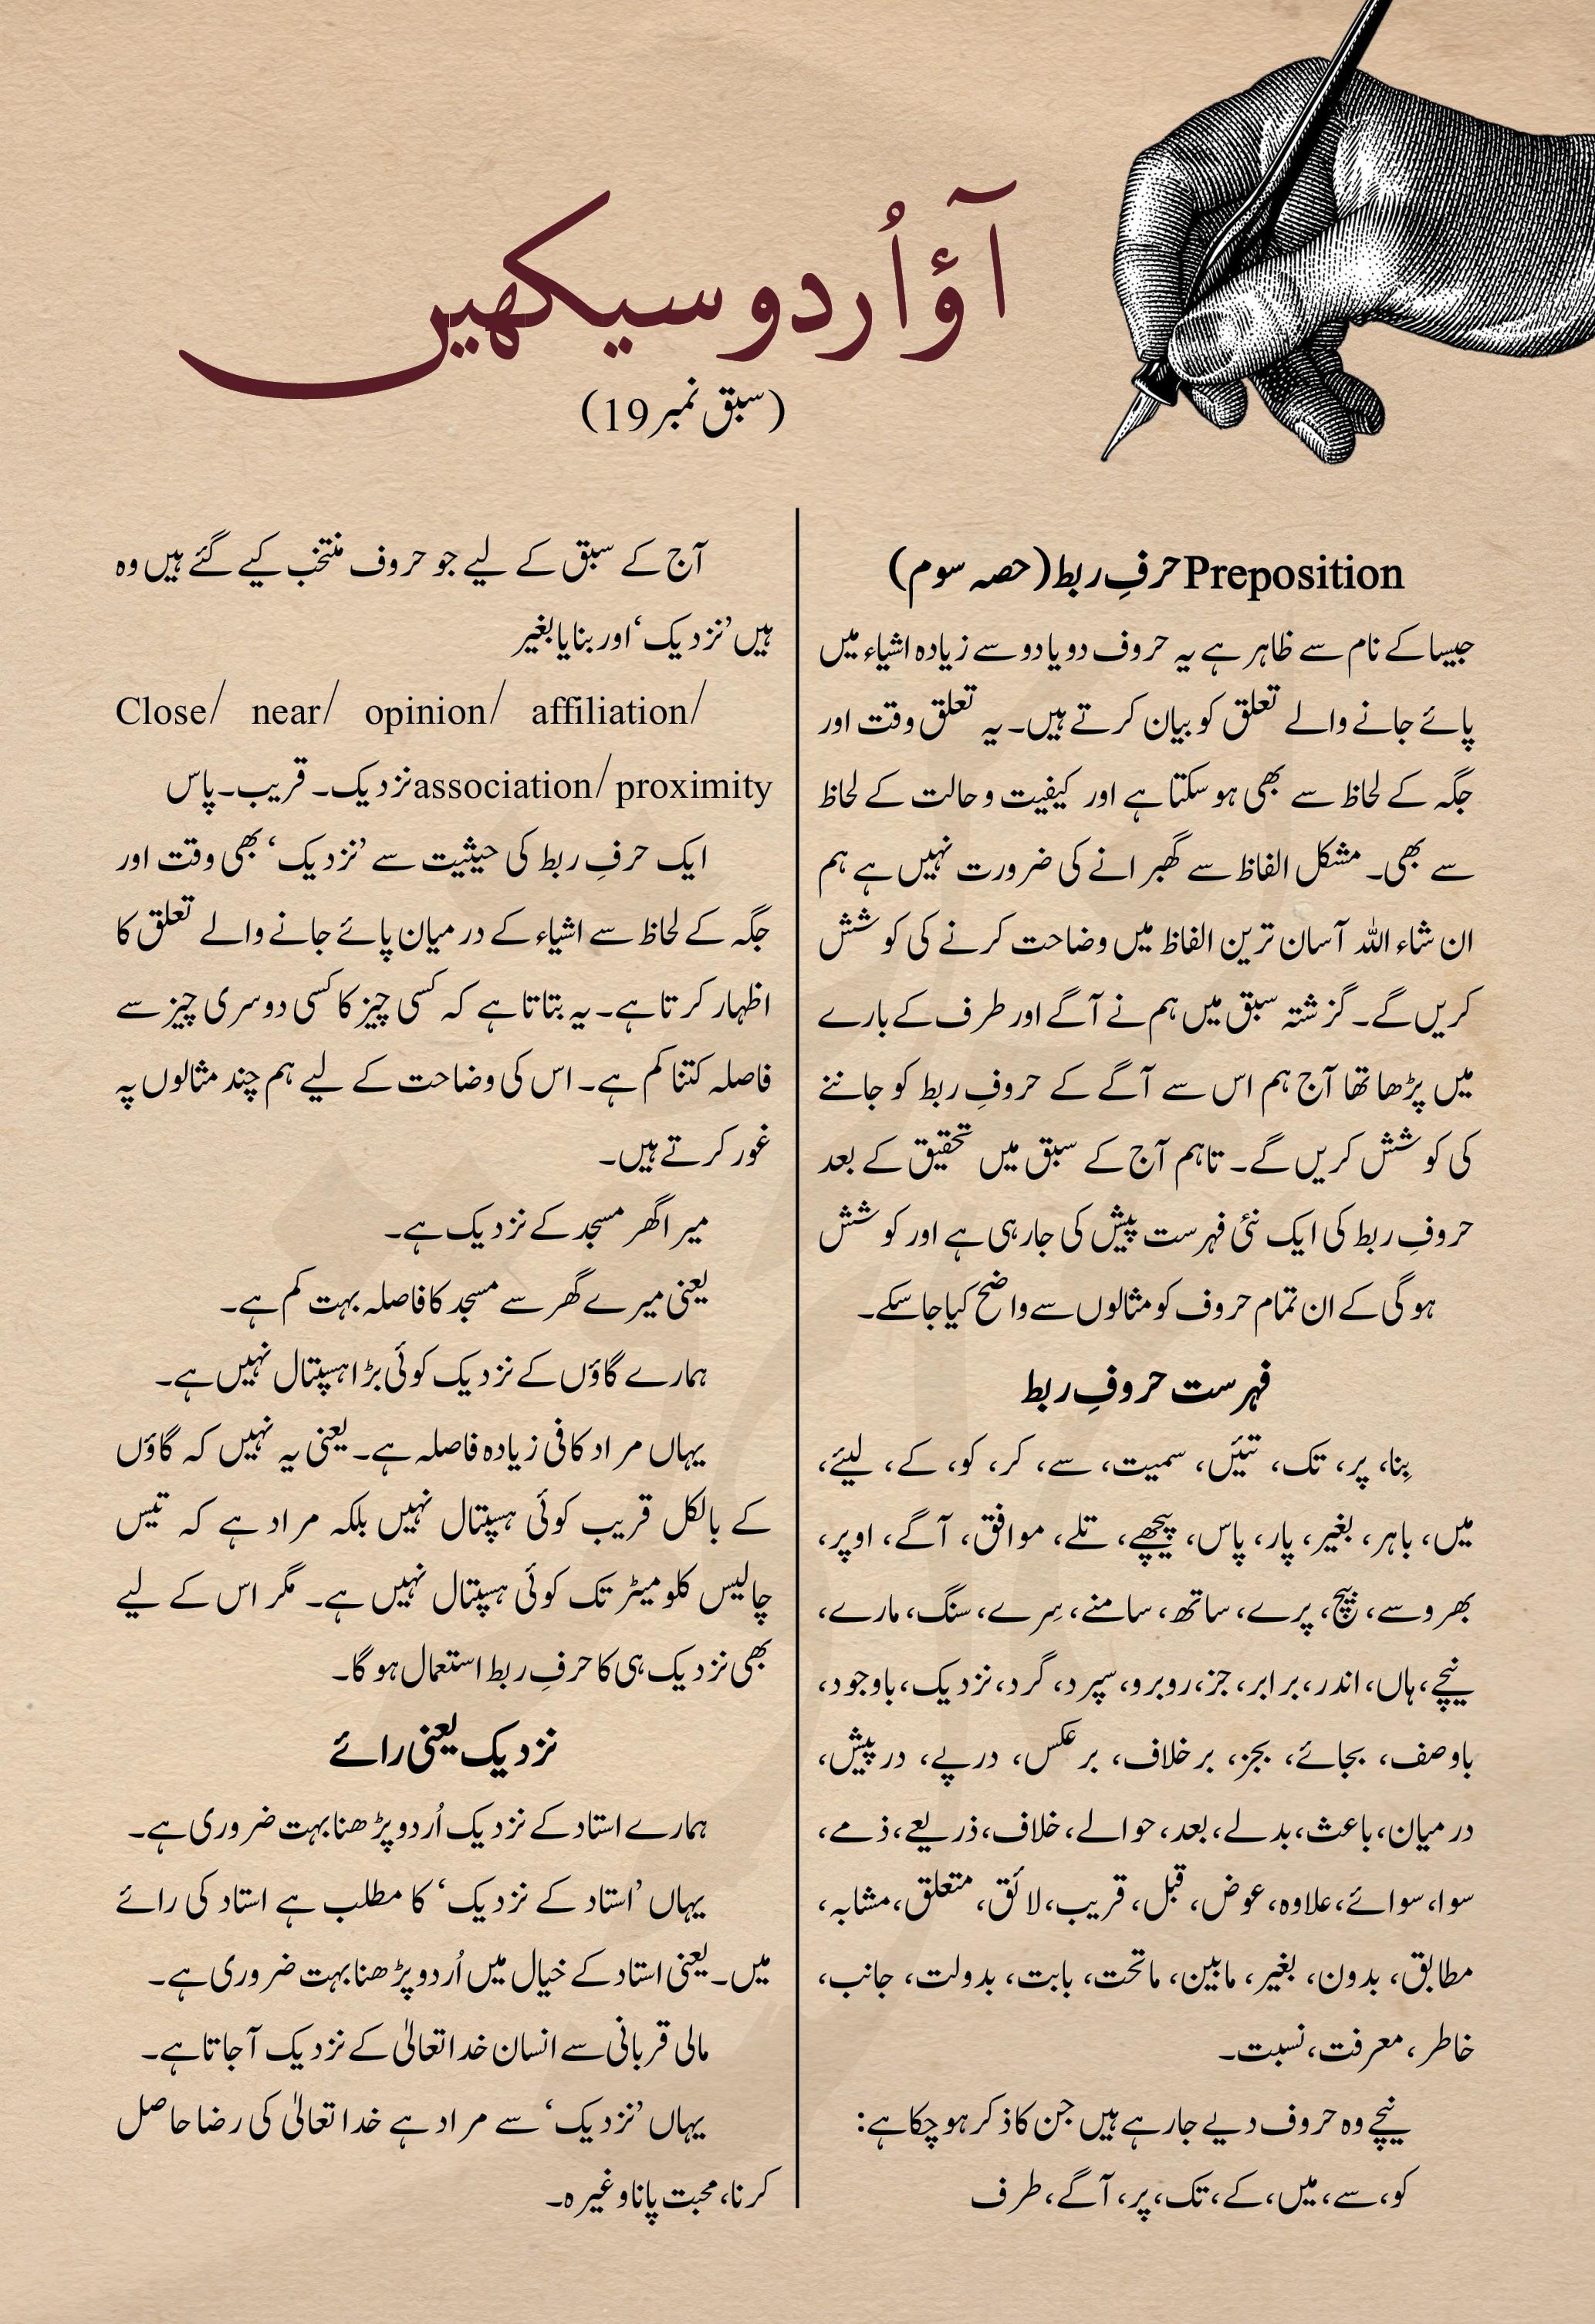 آؤ اُردو سیکھیں
(سبق نمبر 19)
Preposition حرفِ ربط (حصہ سوم)
جیسا کے نام سے ظاہر ہے یہ حروف دو یا دو سے زیادہ اشیاء میں
پائے جانے والے تعلق کو بیان کرتے ہیں۔ یہ تعلق وقت اور
جگہ کے لحاظ سے بھی ہو سکتا ہے اور کیفیت و حالت کے لحاظ
سے بھی۔ مشکل الفاظ سے گھبرانے کی ضرورت نہیں ہے ہم
ان شاء اللہ آسان ترین الفاظ میں وضاحت کرنے کی کوشش
کریں گے۔ گزشتہ سبق میں ہم نے آگے اور طرف کے بارے
میں پڑھا تھا آج ہم اس سے آگے کے حروفِ ربط کو جاننے
کی کوشش کریں گے۔ تاہم آج کے سبق میں تحقیق کے بعد
حروفِ ربط کی ایک نئی فہرست پیش کی جارہی ہے اور کوشش
ہوگی کے ان تمام حروف کو مثالوں سے واضح کیا جاسکے۔
فہرست حروفِ ربط
بِنا، پر، تک، تئیں، سمیت، سے، کر، کو، کے، لیئے،
میں، باہر، بغیر، پار، پاس، پیچھے، تلے، موافق، آگے، اوپر،
بھروسے، بیچ، پرے، ساتھ، سامنے، سِرے، سنگ، مارے،
نیچے، ہاں، اندر، برابر، جز، روبرو، سپرد، گرد، نزدیک، باوجود،
باوصف، بجائے، بجز، برخلاف، برعکس، درپے، درپیش،
درمیان، باعث، بدلے، بعد، حوالے، خلاف، ذریعے، ذمے،
سوا، سوائے، علاوہ، عوض، قبل، قریب، لائق، متعلق، مشابہ،
مطابق، بدون، بغیر، مابین، ماتحت، بابت، بدولت، جانب،
خاطر، معرفت، نسبت۔
نیچے وہ حروف دیے جارہے ہیں جن کا ذکر ہوچکا ہے:
کو، سے، میں، کے، تک، پر، آگے، طرف
آج کے سبق کے لیے جو حروف منتخب کیے گئے ہیں وہ
ہیں ’نزدیک‘ اور بنا یا بغیر
Close/ near/ opinion/ affiliation/
association/ proximity نزدیک۔ قریب۔ پاس
ایک حرفِ ربط کی حیثیت سے ’نزدیک‘ بھی وقت اور
جگہ کے لحاظ سے اشیاء کے درمیان پائے جانے والے تعلق کا
اظہار کرتا ہے۔ یہ بتاتا ہے کہ کسی چیز کا کسی دوسری چیز سے
فاصلہ کتنا کم ہے۔ اس کی وضاحت کے لیے ہم چند مثالوں پہ
غور کرتے ہیں۔
میرا گھر مسجد کے نزدیک ہے۔
یعنی میرے گھر سے مسجد کا فاصلہ بہت کم ہے۔
ہمارے گاؤں کے نزدیک کوئی بڑا ہسپتال نہیں ہے۔
یہاں مراد کافی زیادہ فاصلہ ہے۔ یعنی یہ نہیں کہ گاؤں
کے بالکل قریب کوئی ہسپتال نہیں بلکہ مراد ہے کہ تیس
چالیس کلو میٹر تک کوئی ہسپتال نہیں ہے۔ مگر اس کے لیے
بھی نزدیک ہی کا حرفِ ربط استعمال ہوگا۔
نزدیک یعنی رائے
ہمارے استاد کے نزدیک اُردو پڑھنا بہت ضروری ہے۔
یہاں ’استاد کے نزدیک‘ کا مطلب ہے استاد کی رائے
میں۔ یعنی استاد کے خیال میں اُردو پڑھنا بہت ضروری ہے۔
مالی قربانی سے انسان خدا تعالیٰ کے نزدیک آجاتا ہے۔
یہاں ’نزدیک‘ سے مراد ہے خدا تعالیٰ کی رضا حاصل
کرنا، محبت پانا وغیرہ۔